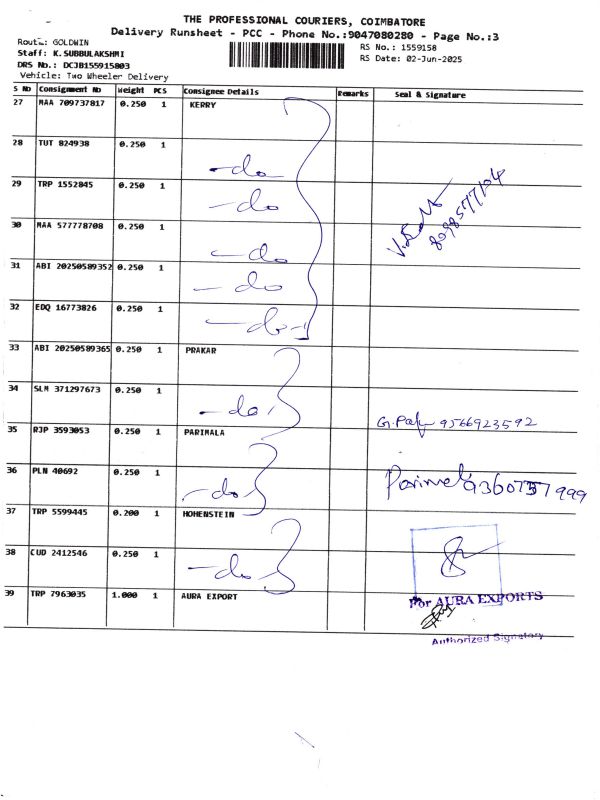 THE PROFESSIONAL COURIERS, COIMBATORE
Delivery Runsheet - PCC - Phone No.:9047080280 - Page No.:3
Route: GOLDWIN
RS No.: 1559158
Staff: K.SUBBULAKSHMI
RS Date: 02-Jun-2025
DRS No.: DCJB155915803
Vehicle: Two Wheeler Delivery
S No Consignment No Weight PCS Consignee Details Remarks Seal & Signature
27 MAA 709737817 0.250 1 KERRY
28 TUT 824938 0.250 1
-do
29 TRP 1552845 0.250 1
-do
30 MAA 577778708 0.250 1
-do
31 ABI 20250589352 0.250 1
-do
32 EDQ 16773826 0.250 1
-do-
33 ABI 20250589365 0.250 1 PRAKAR
34 SLM 371297673 0.250 1
-do
9566923592
35 RJP 3593053 0.250 1 PARIMALA
36 PLN 40692 0.250 1
-do
37 TRP 5599445 0.200 1 HOHENSTEIN
38 CUD 2412546 0.250 1
-do
39 TRP 7963035 1.000 1 AURA EXPORT
For AURA EXPORTS
Authorized Signatory